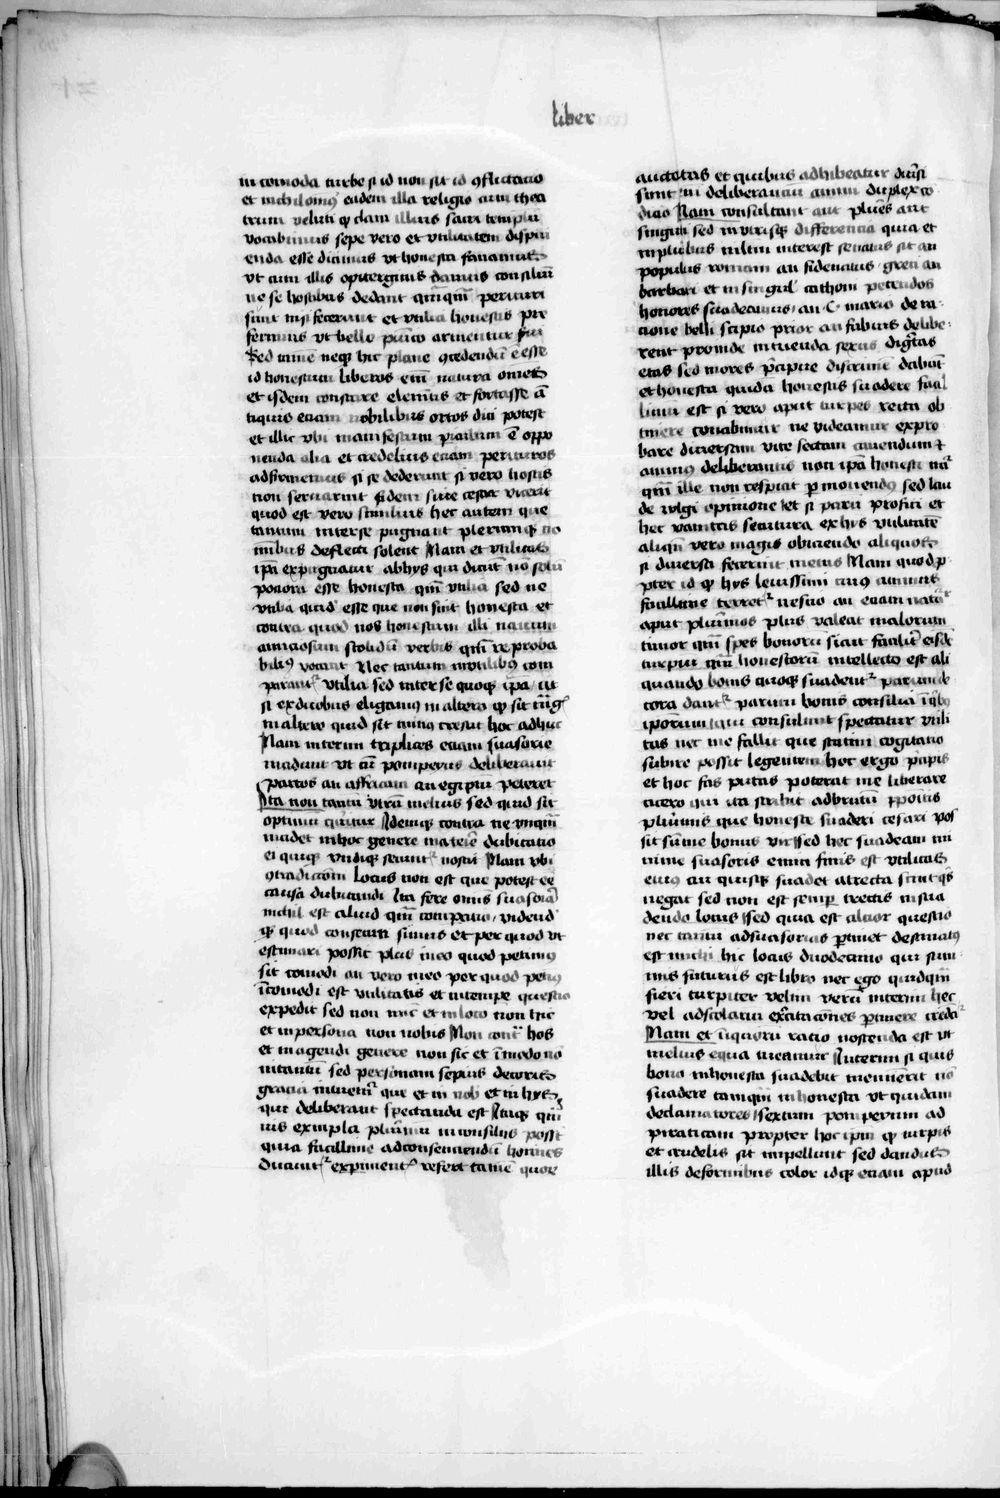 liber
in comoda turbe si id non sit id ꝯflictatio
et nichilomiꝰ eudem illa religio cum thea
trum veluti ꝙ dam illius sacri templū
vocabimus sepe vero et vtilitatem dispici
enda esse dicimus vt honesta faciamus
vt cum illis opiterginis damus consiliū
ne se hostibus dedant qm̄qm̄ perituri
sunt nisi fecerint et vtilia honestis pre
ferimus vt bello punico armentur
Sed tamē neqꝫ hic plane ꝯcedendū ē esse
id honestum liberos em̄ natura omēs
et ijsdem constare elemtis et fortasse ā
tiquis etiam nobilibus ortos dici potest
et illic vbi manifestum piculum ē oppo
nenda alia et credelius etiam perituros
adfirmemus si se dederint si vero hostis
non seruarint fidem siue cesar vicerit
quod est vero similius hec autem que
tantum inter se pugnant plerumqꝫ no
minibus deflecti solent Nam et vtilitas
ipā expugnatur ab hys qui dicūt nō solū
potiora esse honesta qm̄ vtilia sed ne
vtilia quid esse que non sint honesta et
contra quod nos honestum illi nanum
ambiciosum stolidū verbis qm̄ re proba
bilius vocant Nec tantum inutilibꝰ com
parant᷑ vtilia sed inter se quoqꝫ ipā ut
si ex duobus eligamꝰ in altero ꝙ sit mag᷑
in altero quid sit minꝰ cresat hoc adhuc
Nam interim triplices etiam suasorie
incidunt vt cū pompeius deliberauit
partos an affricam an egiptū peteret
Ita non tantū vtrū melius sed quid sit
optimū querit᷑ Itemqꝫ contra ne vnqm̄
incidet in hoc genere materiē dubitatio
ei quiqꝫ vndiqꝫ seruit᷑ nostri Nam vbi
ꝯtradictōni locus non est que potest eē
causa dubitandi Ita fere omis suasoria
nichil est aliud qm̄ comparatio vidend᷑
qꝫ quod consecuri simus et per quod vt
estimari possit plus in eo quod petimꝰ
sit comodi an vero in eo per quod petiꝰ
īcomodi est vtilitatis et in tempe questio
expedit sed non nūc et in loco non hic
et in persona non nobis Non cont᷑ hos
et in agendi genere non sic et ī modo nō
in tantū sed personam sepius decoris
gracia intuem᷑ que et in nob et in hys
qui deliberant spectanda est Itaqꝫ qm̄
uis exempla plurimū in consilijs possit
quia facillime ad consenciendū homines
ducunt᷑ expimentis refert tamē quorū
auctoritas et quibus adhibeatur diuersi
sunt em̄ deliberantiū animi duplex co
dicio Nam consultant aut plures aut
singuli sed in vtrisqꝫ differentia quia et
in pluribus multū interest senatus sit an
populus romani an fidenatis greci an
barbari et in singul᷑ cathoni petendos
honores suadeamus an C mario de ra
cione belli scipio prior an fabius delibe
rent proinde intuenda sexus dignitas
etas sed mores precipue discrimē dabūt
et honesta quidā honestis suadere facil
limū est si vero aput turpes recta ob
tinere conabimur ne videamur expro
bare diuersam vite sectam cauendum ⁊
animꝰ deliberantis non ipā honesti nat᷑
qm̄ ille non respiciat p mouendꝰ sed lau
de vulgi opinione et si parū proficit et
hec vanitas secutura ex hys vtilitatē
aliqm̄ vero magis obiciendo aliquos
si diuersa fecerint metus Nam quod p
pter id ꝙ hys leuissimi cuiꝰ animus
facillime terret᷑ nescio an etiam natur᷑
aput plurimos plus valeat malorum
timor qm̄ spes bonorū sicut facilior eisdē
turpiū qm̄ honestorū intellecto est ali
quando bonis quoqꝫ suadent᷑ parum de
cora dant᷑ parum bonis consilia ī qbꝰ
ipōrum qui consulunt spectatur vtili
tas nec me fallit que statim cogitatio
subire possit legentem hoc ergo precipis
et hoc fas putas poterat me liberare
cicero qui ita scribit ad brutū prepositis
plurimis que honeste suaderi cesari pos
sit sūme bonus vir sed hec suadeam mi
nime suasoris enim finis est vtilitas
eiusꝰ cui quisqꝫ suadet at recta sunt qs
negat sed non est semp rectis in sua
dendo locus Sed quia est alcior questio
nec tantū ad suasorias ptinet destinatꝰ
est michi hic locus duodecimo qui sum
mus futurus est libro nec ego quidqm̄
fieri turpiter velim verū interim hec
vel ad scolarū excitacōnes ptinere creda᷑
Nam et iniquorū racio noscenda est vt
melius equa tueamur Interim si quis
bono inhonesta suadebit meminerit nō
suadere tamqm̄ inhonesta vt quidam
declamatores sextum pompeium ad
piraticam propter hoc ipm ꝙ turpis
et crudelis sit impellunt sed dandus
illis deformibus color idqꝫ etiam apud